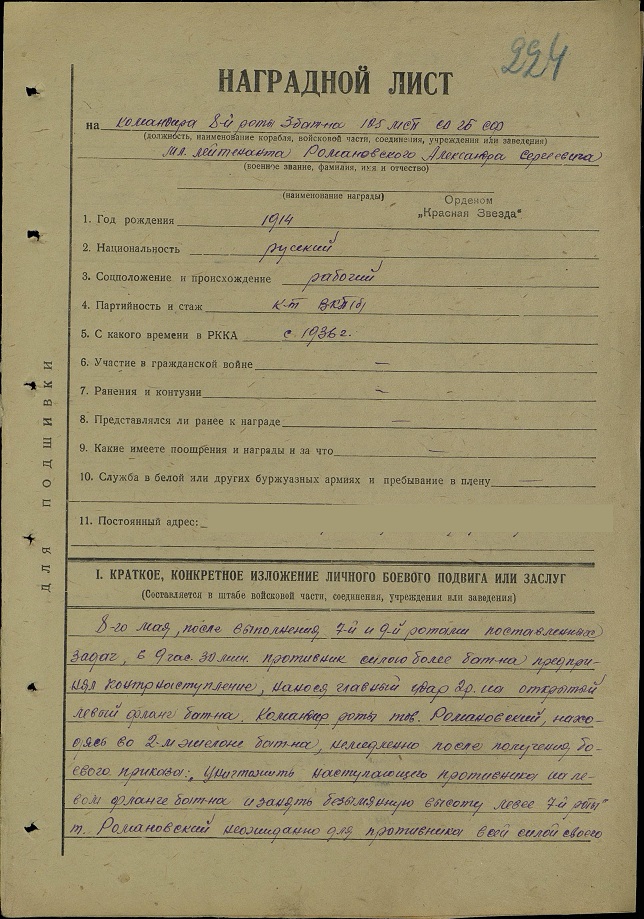 224
НАГРАДНОЙ ЛИСТ
на командира 8-й роты 3 бат-на 105 мсп
(должность, наименование корабля, войсковой части, соединения, учреждения или заведения)
мл. лейтенанта Романовского Александра Сергеевича
(военное звание, фамилия, имя и отчество)
(наименование награды)
Орденом
„Красная Звезда"
1. Год рождения 1914
2. Национальность русский
3. Соцположение и происхождение рабочий
4. Партийность и стаж к-т ВКП(б)
5. С какого времени в РККА с 1936 г.
6. Участие в гражданской войне —
7. Ранения и контузии —
8. Представлялся ли ранее к награде —
9. Какие имеете поощрения и награды и за что —
10. Служба в белой или других буржуазных армиях и пребывание в плену —
11. Постоянный адрес:
ДЛЯ ПОДШИВКИ
I. КРАТКОЕ, КОНКРЕТНОЕ ИЗЛОЖЕНИЕ ЛИЧНОГО БОЕВОГО ПОДВИГА ИЛИ ЗАСЛУГ
(Составляется в штабе войсковой части, соединения, учреждения или заведения)
8-го мая, после выполнения 7-й и 9-й ротами поставленных
задач, в 9 час. 30 мин. противник силою более бат-на предпри-
нял контрнаступление, нанося главный удар на открытый
левый фланг бат-на. Командир роты тов. Романовский, нахо-
дясь во 2-м эшелоне бат-на, немедленно после получения бо-
евого приказа: „Уничтожить наступающего противника на ле-
вом фланге бат-на и занять безымянную высоту левее 7-й роты"
т. Романовский неожиданно для противника всей силой своего